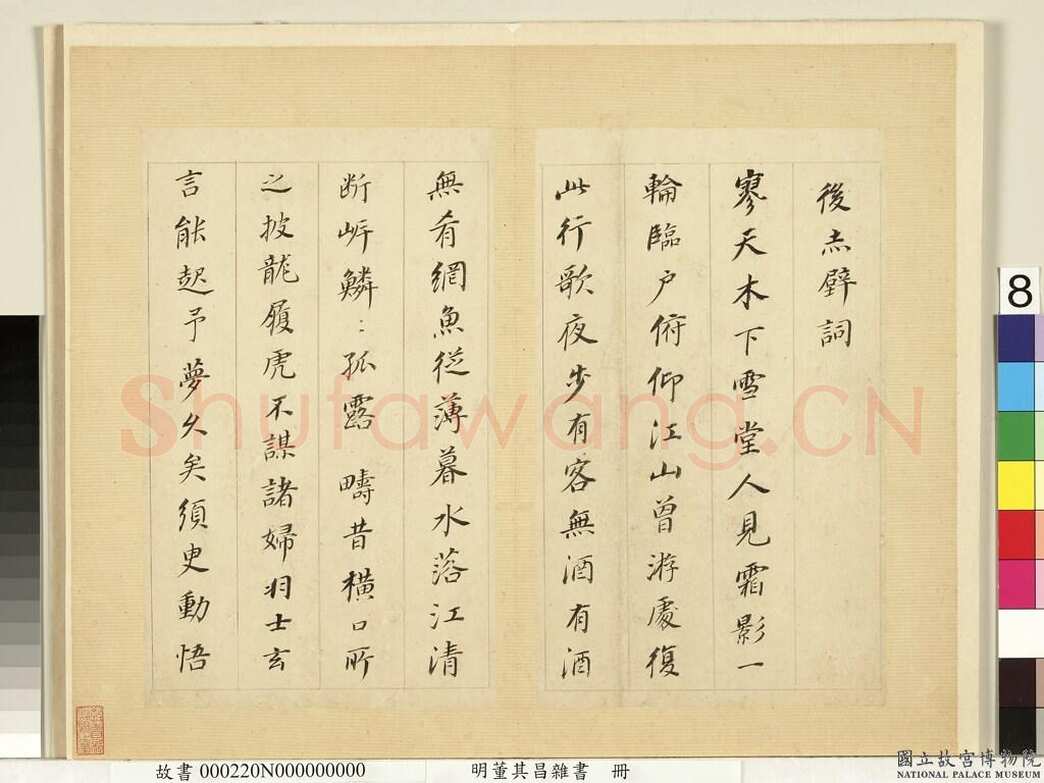 後赤壁詞
寥天木下雪堂人見霜影一
輪臨户俯仰江山曾游處復
此行歌夜步有客無酒有酒
無肴網魚從薄暮水落江清
断岸鱗:孤露 疇昔橫口所
之披龍履虎不謀諸婦羽士玄
言能起予夢久矣須臾動悟
Shufawang.CN
8
故書 000220N000000000 明董其昌雜書 冊
國立故宮博物院
NATIONAL PALACE MUSEUM